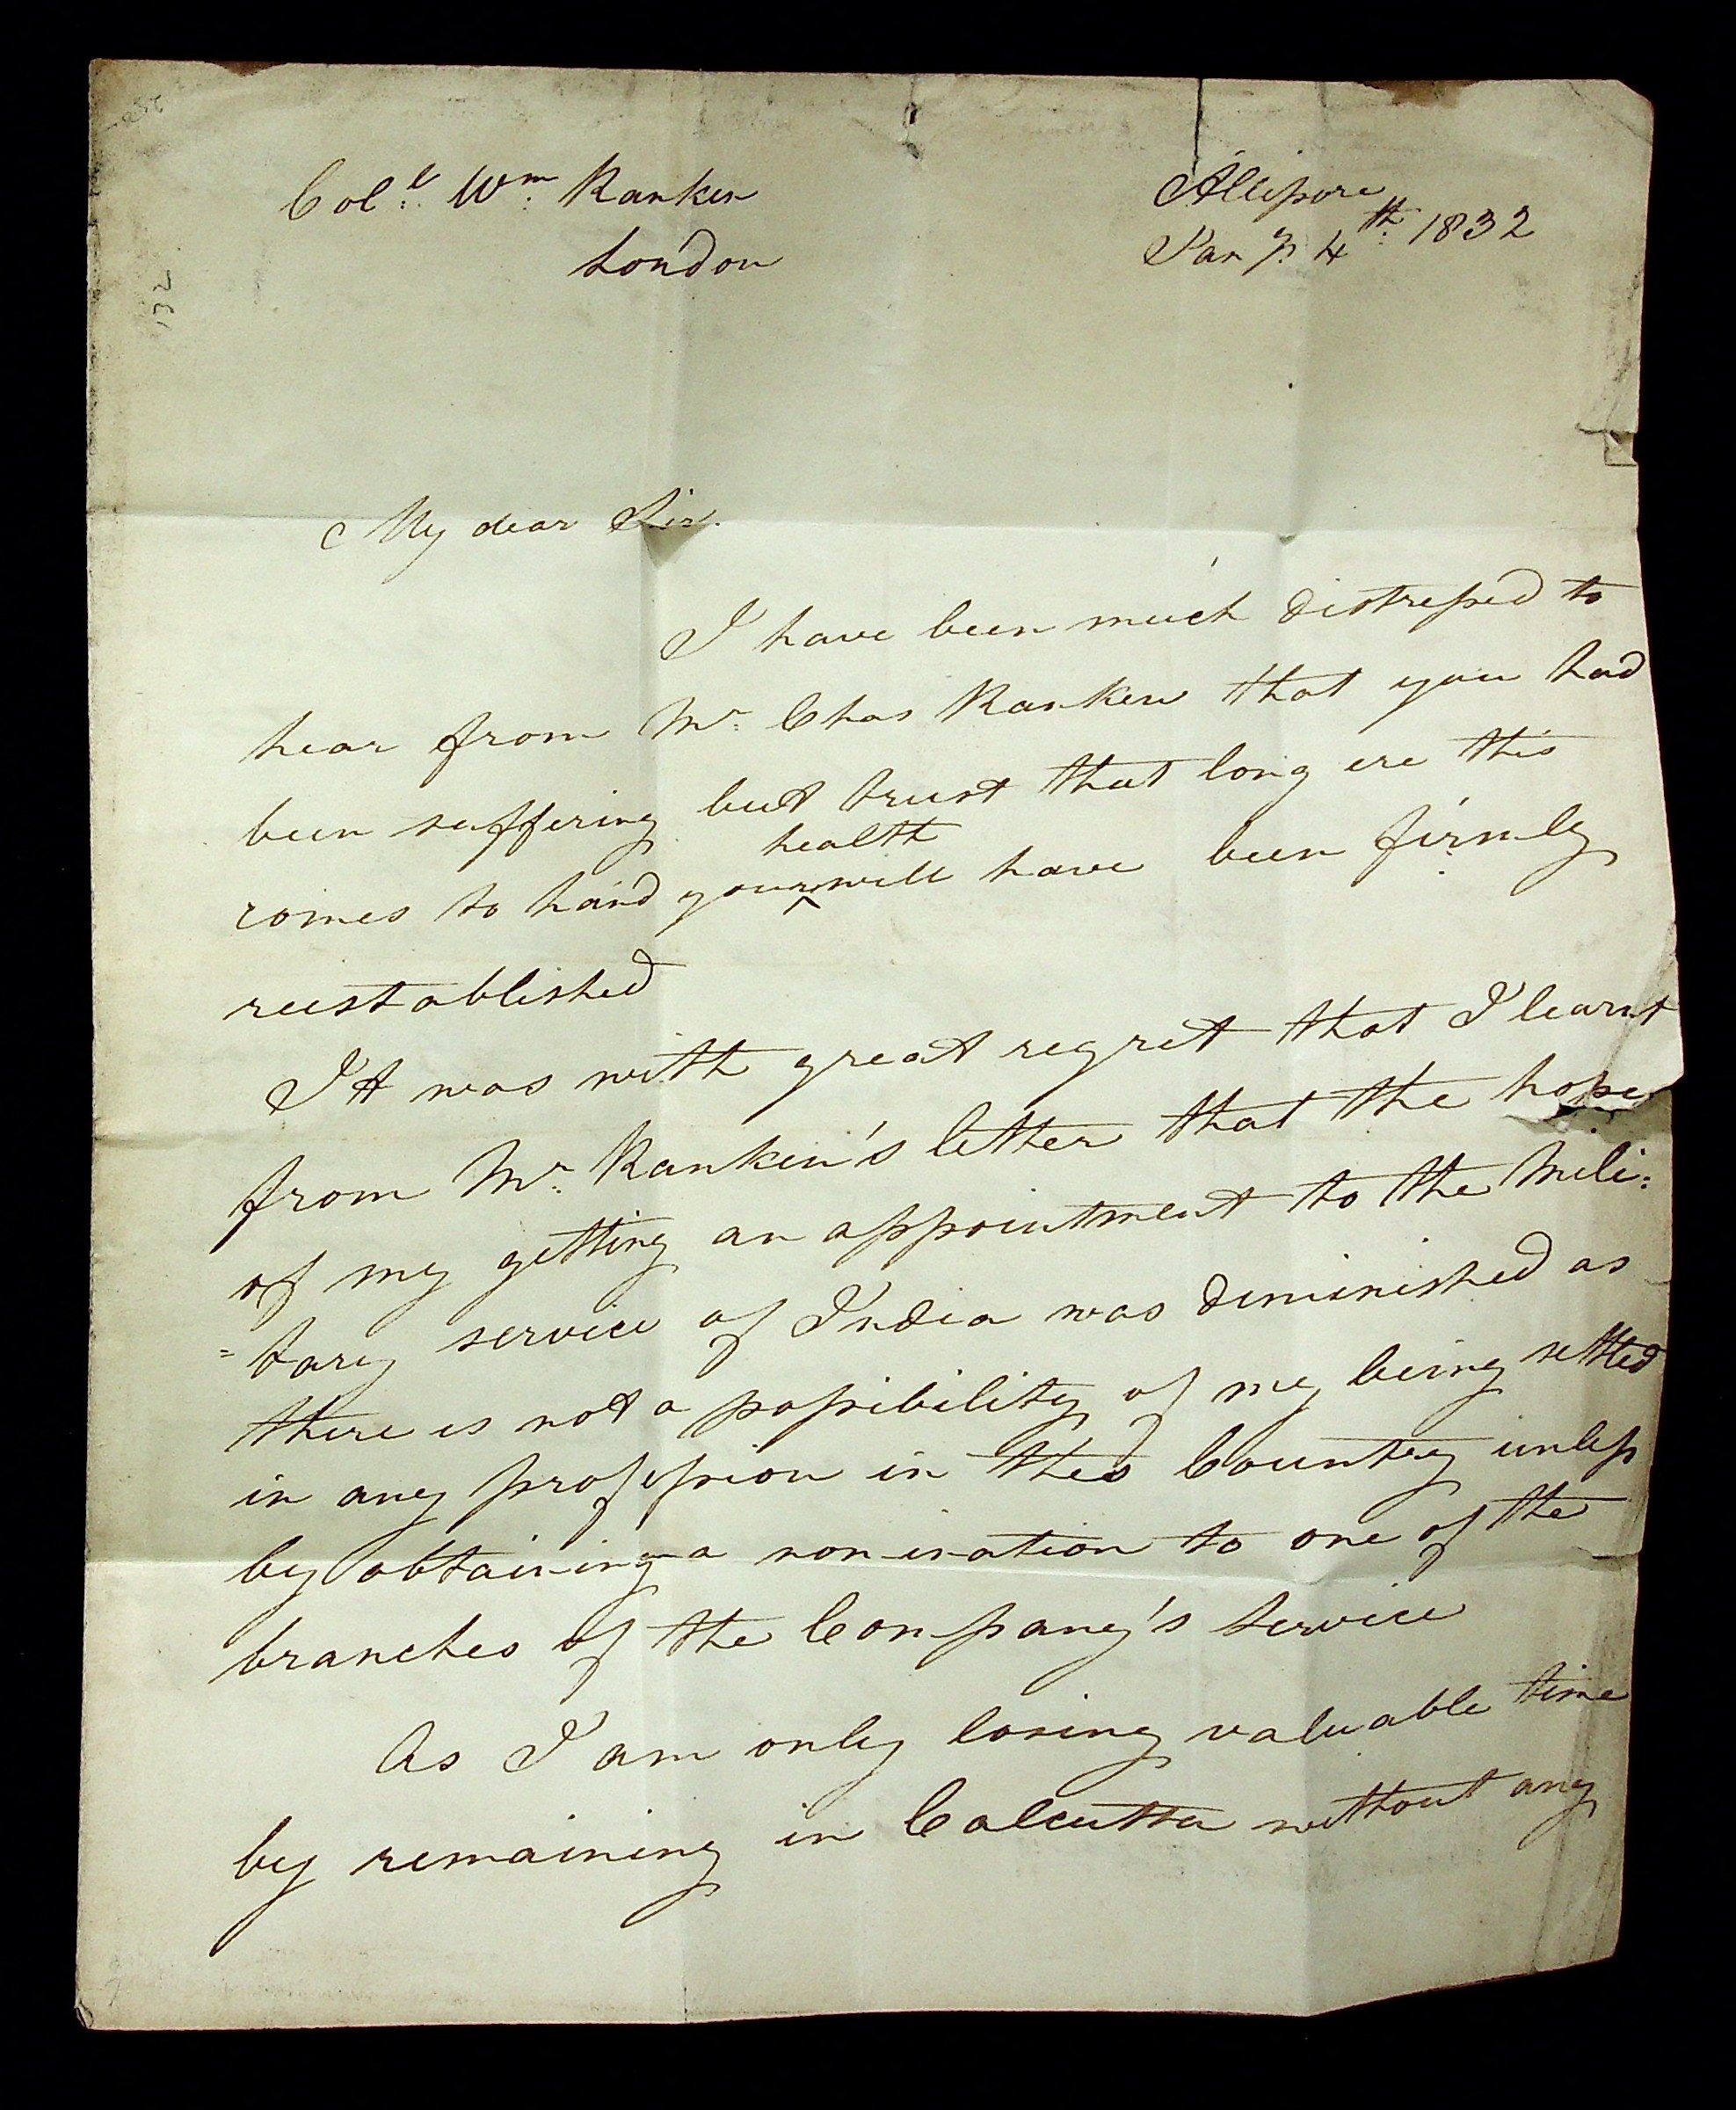 Col.l Wm. Ranken
London
Allipore
Jany. 4th. 1832
132
My dear Sir.
I have been much distressed to
hear from Mr. Chas Ranken that you had
been suffering but trust that long ere this
health
comes to hand your ^ will have been firmly
reestablished
It was with great regret that I learnt
from Mr. Ranken's letter that the hope
of my getting an appointment to the Mili:
=tary service of India was diminished as
there is not a possibility of my being settled
in any profession in this Country unless
by obtaining a nomination to one of the
branches of the Company's Service
As I am only losing valuable time
by remaining in Calcutta without any